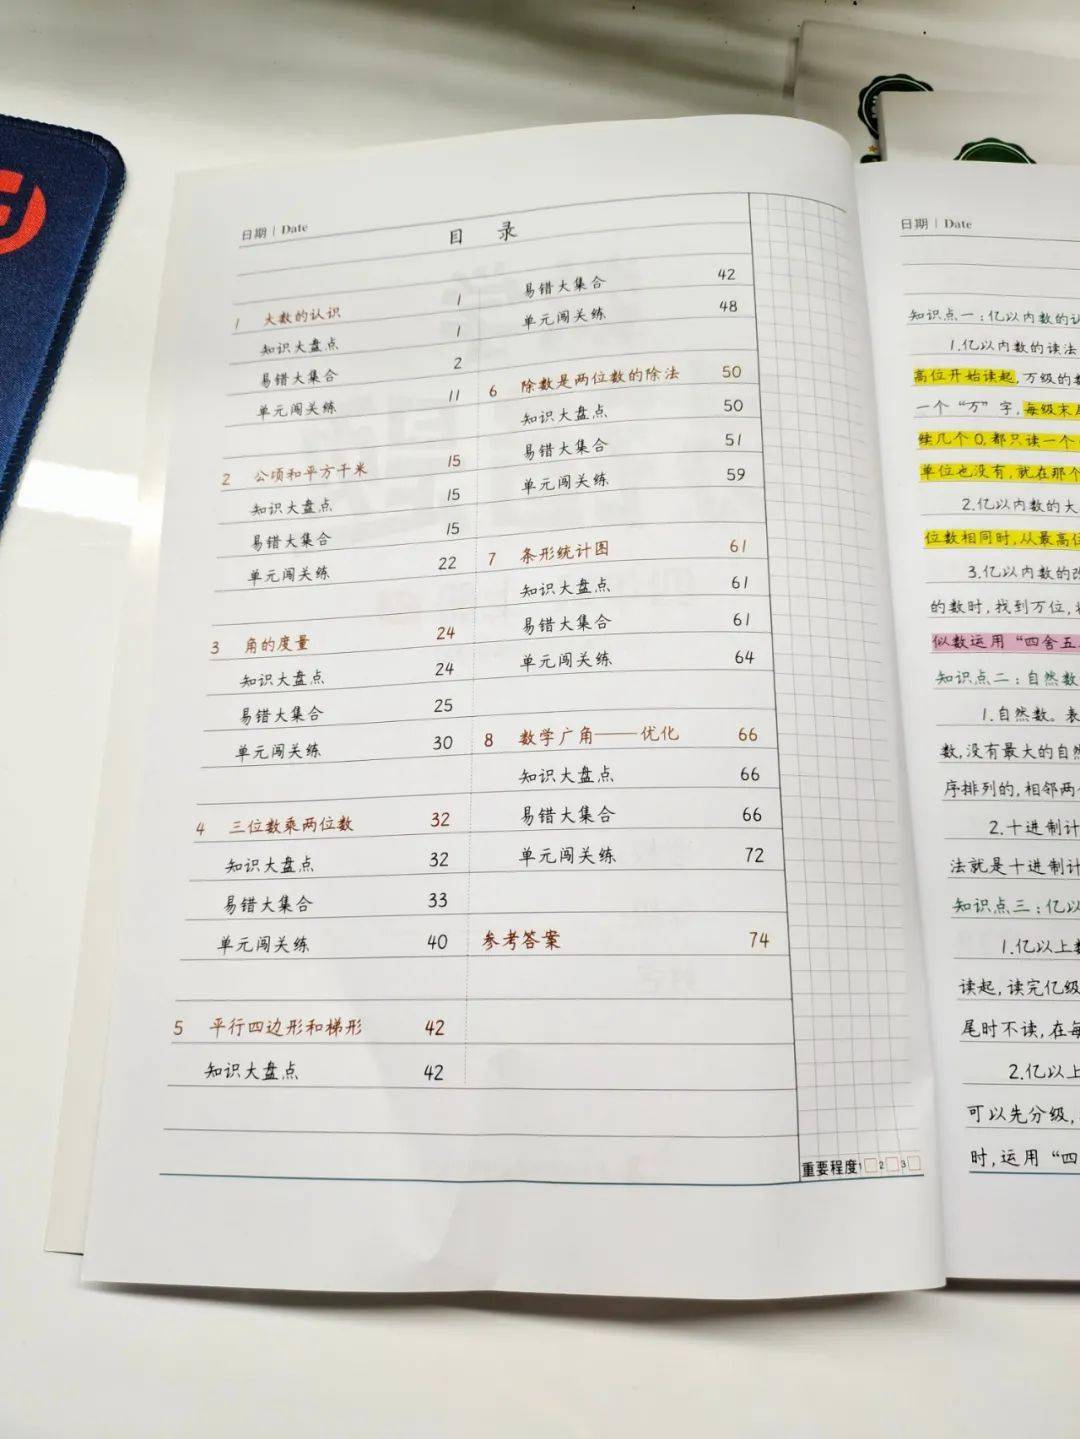 日期 | Date
目 录
1 大数的认识 1
知识大盘点 1
易错大集合 2
单元闯关练 11
2 公顷和平方千米 15
知识大盘点 15
易错大集合 15
单元闯关练 22
3 角的度量 24
知识大盘点 24
易错大集合 25
单元闯关练 30
4 三位数乘两位数 32
知识大盘点 32
易错大集合 33
单元闯关练 40
5 平行四边形和梯形 42
知识大盘点 42
易错大集合 42
单元闯关练 48
6 除数是两位数的除法 50
知识大盘点 50
易错大集合 51
单元闯关练 59
7 条形统计图 61
知识大盘点 61
易错大集合 61
单元闯关练 64
8 数学广角——优化 66
知识大盘点 66
易错大集合 66
单元闯关练 72
参考答案 74
重要程度 1 2 3
日期 | Date
知识点一:亿以内数的认
1.亿以内数的读法
高位开始读起,万级的数
一个“万”字,每级末尾
续几个0,都只读一个
单位也没有,就在那个
2.亿以内数的大
位数相同时,从最高位
3.亿以内数的改
的数时,找到万位,
似数运用“四舍五
知识点二:自然数
1.自然数。表
数,没有最大的自然
序排列的,相邻两
2.十进制计
法就是十进制计
知识点三:亿以
1.亿以上数
读起,读完亿级
尾时不读,在每
2.亿以上
可以先分级,
时,运用“四